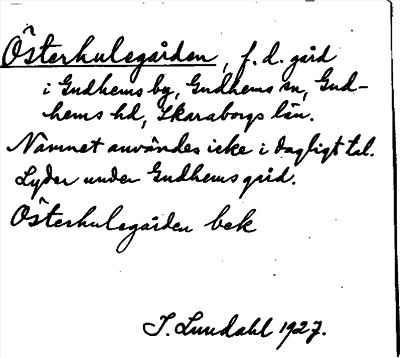 Österkulegården, f. d. gård
i Gudhems by, Gudhems sn, Gud-
hems hd, Skaraborgs län.
Namnet användes icke i dagligt tal.
Lyder under Gudhems grd.
Österkulegården bek
I. Lundahl 1927.